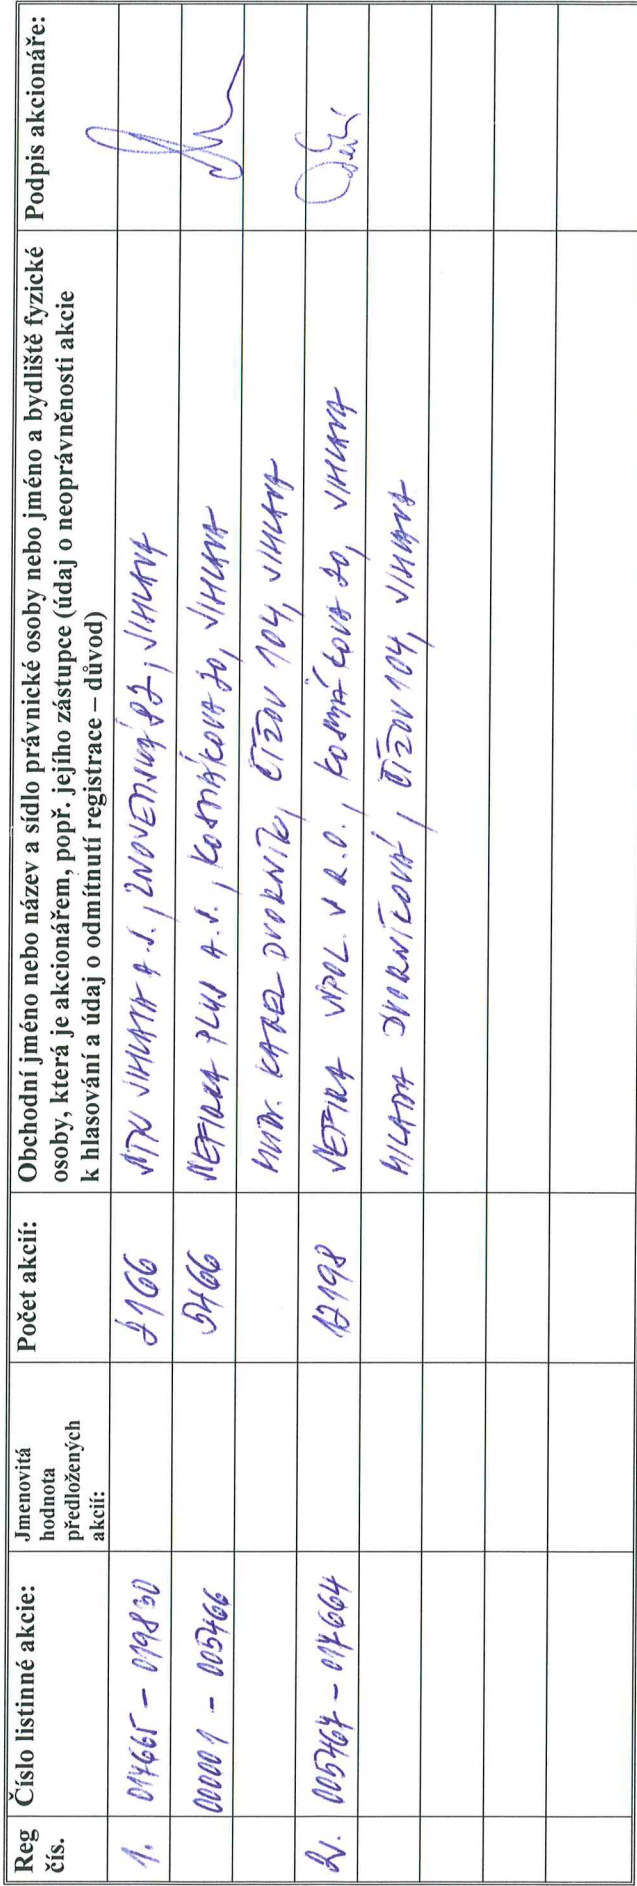 Reg
čís.
Číslo listinné akcie:
Jmenovitá
hodnota
předložených
akcií:
Počet akcií:
Obchodní jméno nebo název a sídlo právnické osoby nebo jméno a bydliště fyzické
osoby, která je akcionářem, popř. jejího zástupce (údaj o neoprávněnosti akcie
k hlasování a údaj o odmítnutí registrace – důvod)
Podpis akcionáře:
1. 017665 – 019830 2166 STK JIHLAVA A.S., JIHLAVA
000001 – 005466 5466 PLUS A.S., KOSMÁKOVA JIHLAVA
MUDr. KAREL DVORNÍK, ČÍŽOV 104, JIHLAVA
2. 005467 – 017664 12198 SPOL. S R.O., KOSMÁKOVA JIHLAVA
MILADA DVORNÍKOVÁ, ČÍŽOV 104, JIHLAVA